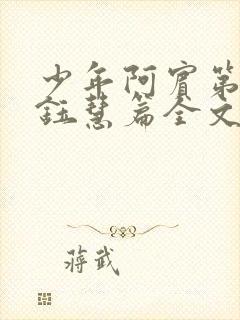 少年阿宾第
钰慧篇全文
蒋武